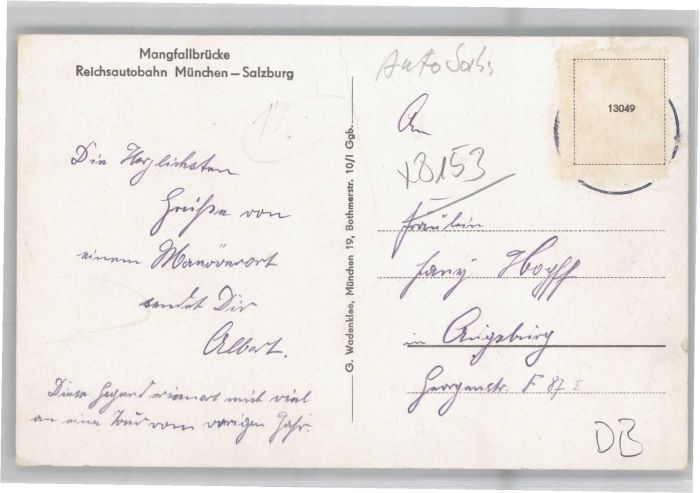 Mangfallbrücke
Reichsautobahn München – Salzburg
Die Herzlichsten
Grüße von
einem Manöverort
sendet Dir
Albert.
Diese Gegend erinnert mich viel
an eine Tour vom vorigen Jahr.
G. Wadenklee, München 19, Bothmerstr. 10/I Ggb.
Auto
13049
An
x8153
Fräulein
Fany Hopff
in Augsburg
Georgenstr. F 87 I
DB